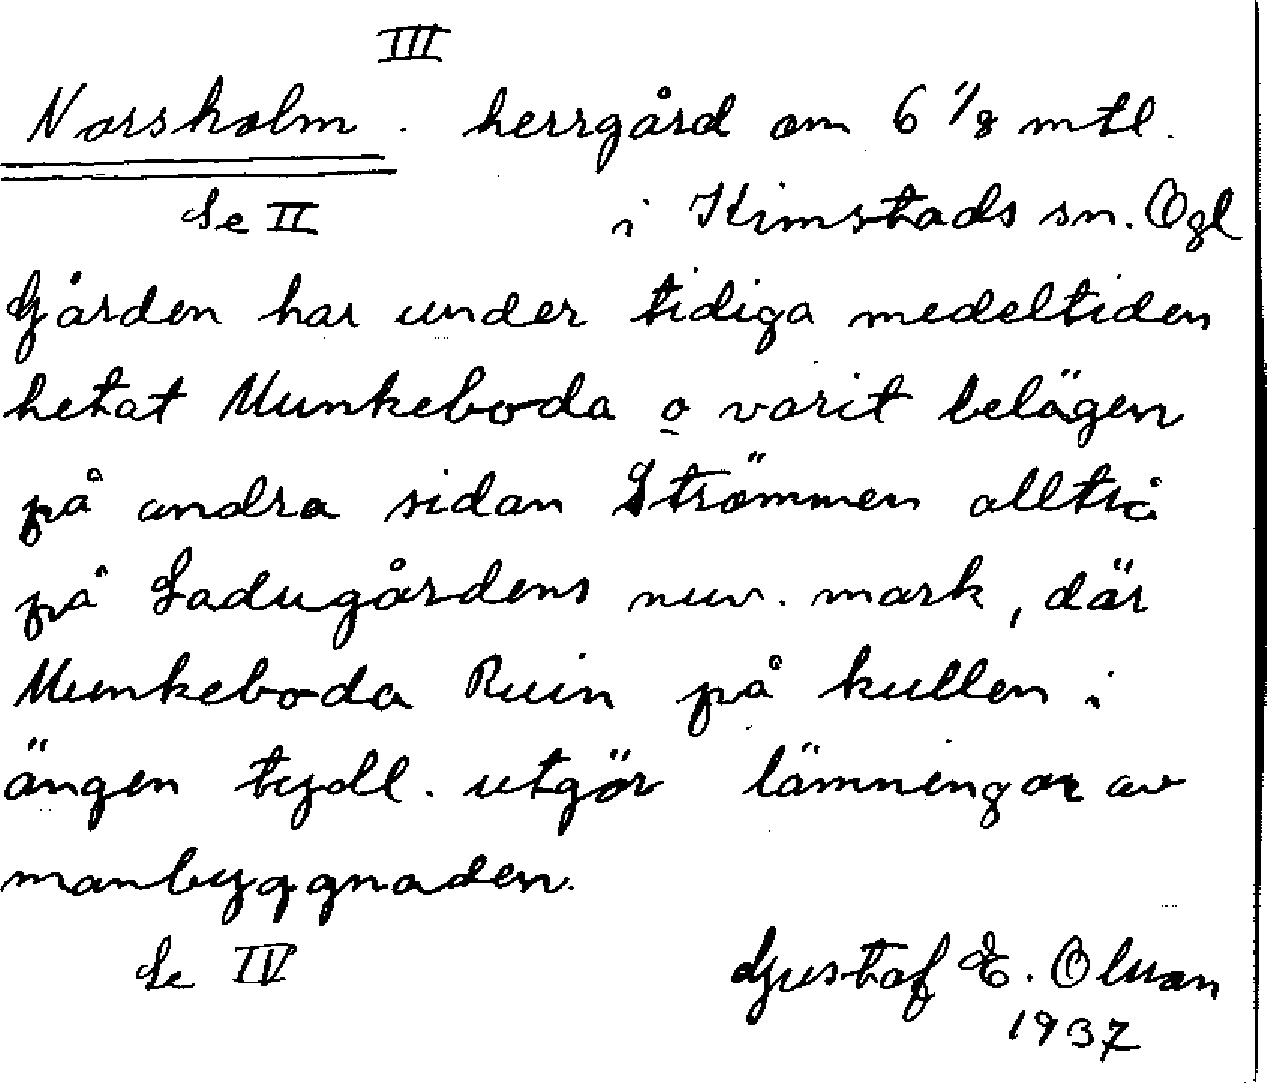 III
Norsholm. herrgård om 6 1/8 mtl.
Se II i Kimstads sn. Ögl
Gården har under tidiga medeltiden
hetat Munkeboda o varit belägen
på andra sidan Strömmen alltså
på Ladugårdens nuv. mark, där
Munkeboda Ruin på kullen i
ängen tydl. utgör lämningar av
manbyggnaden.
Se IV Gustaf E. Olsson
1937